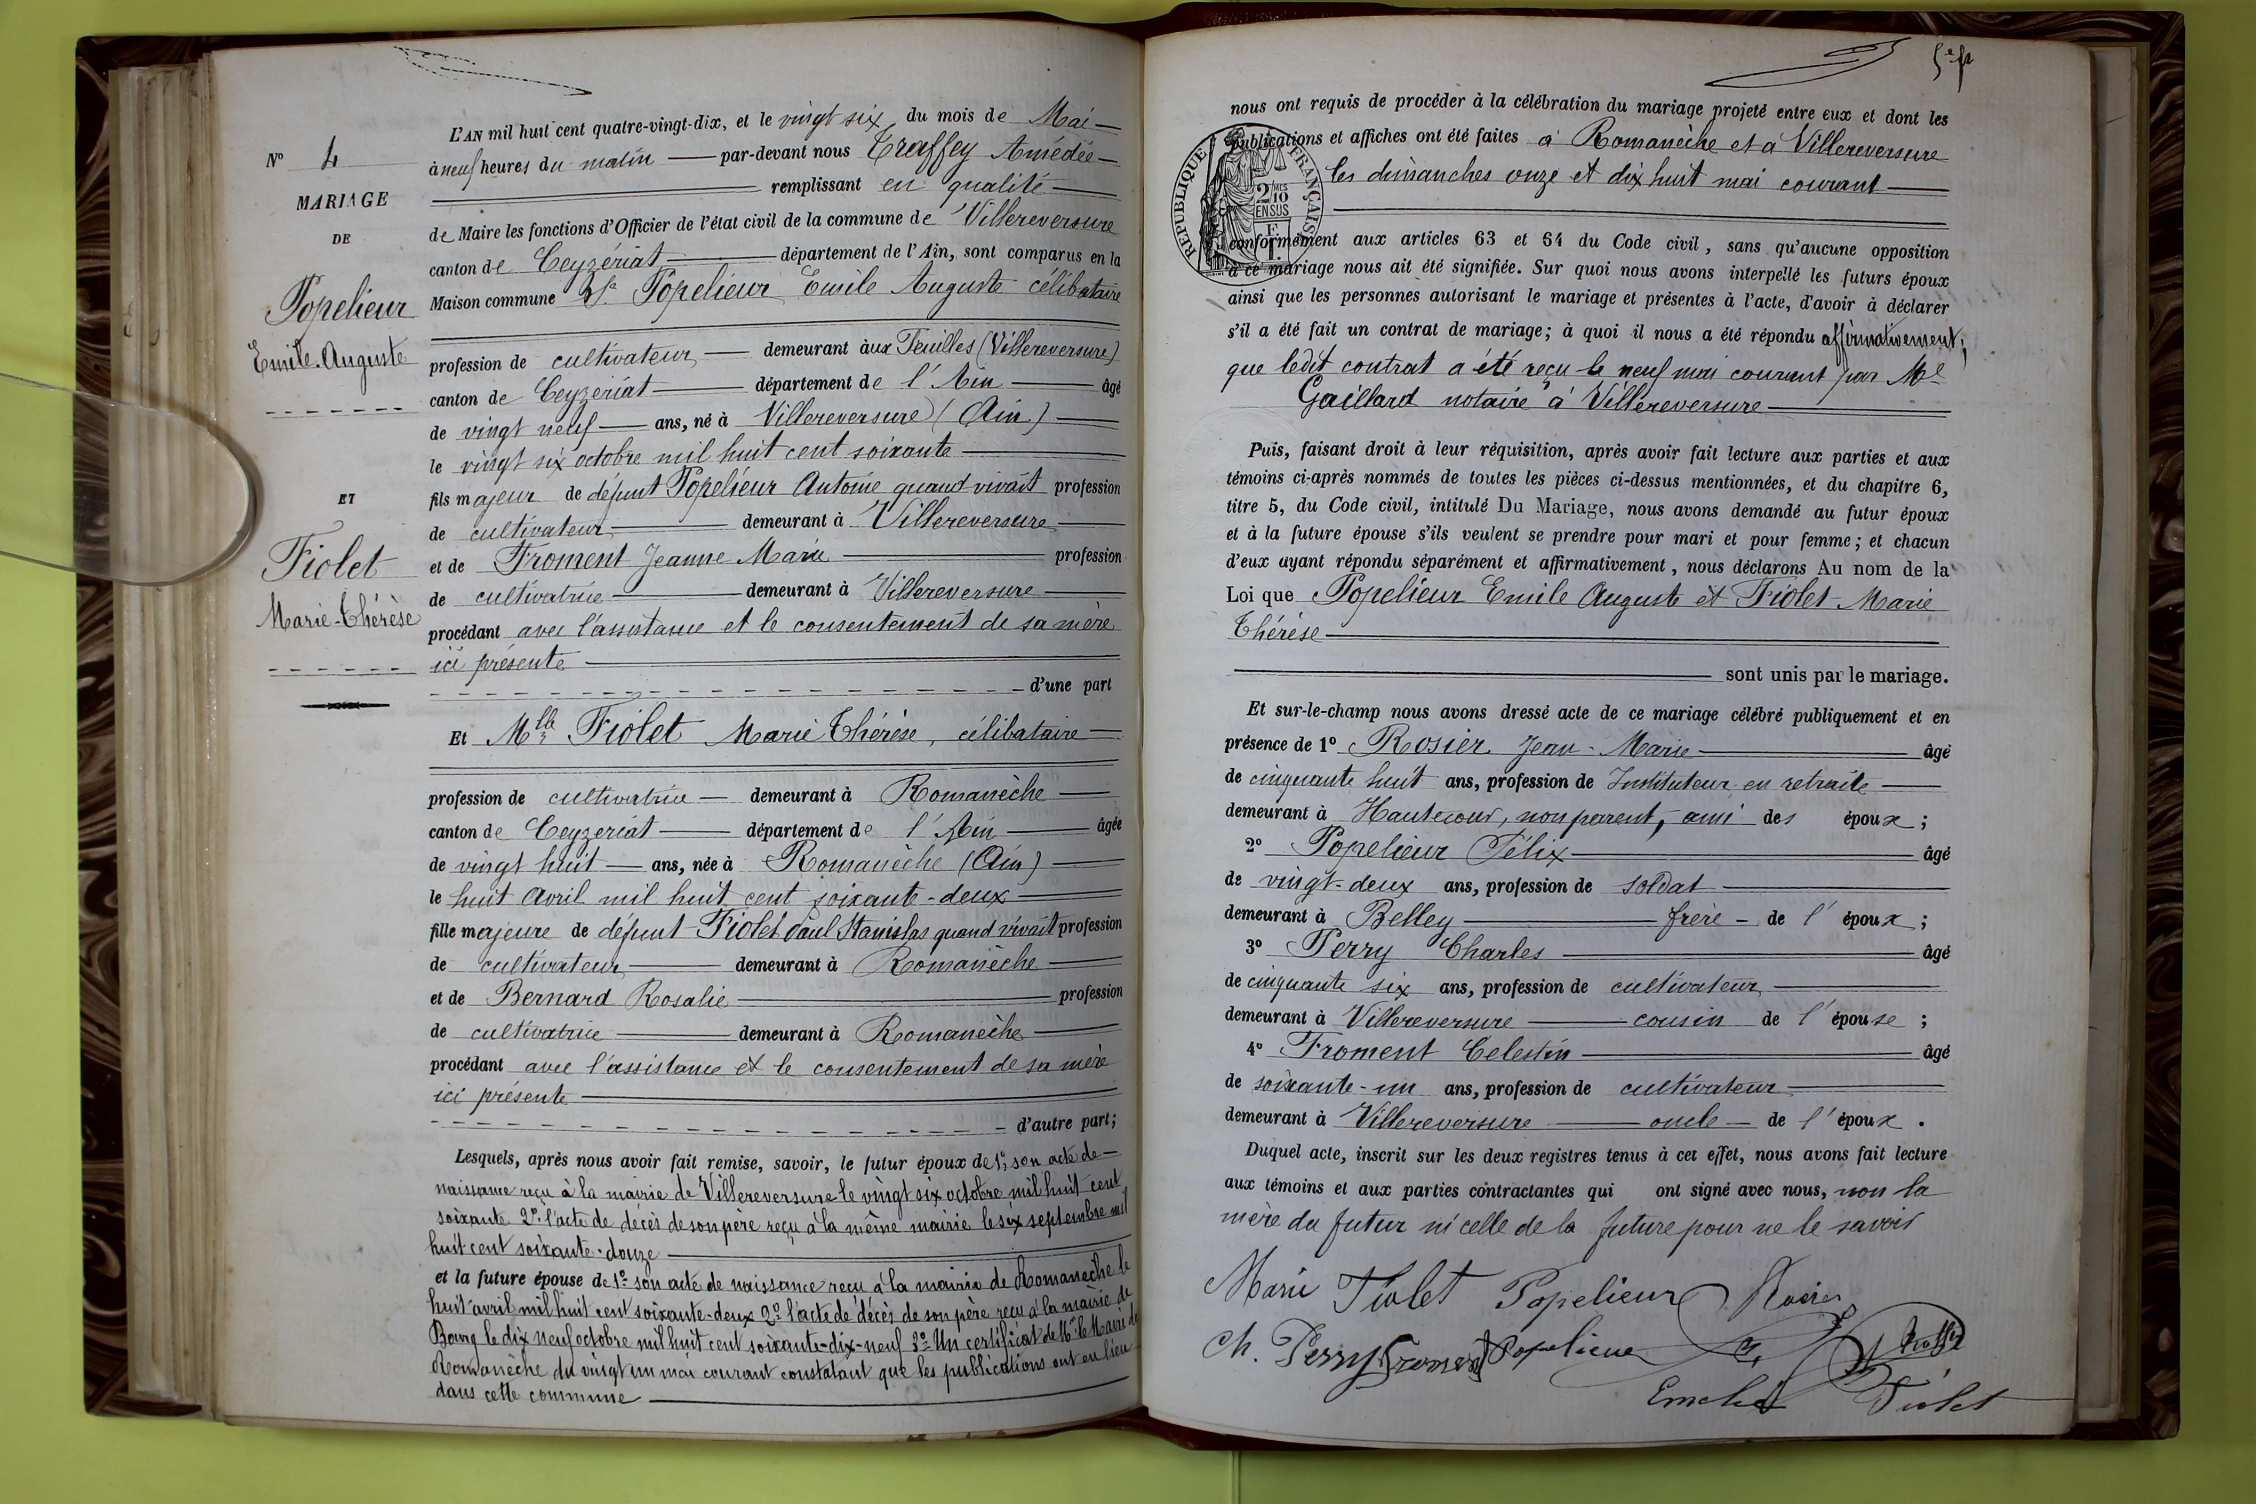 N° 4
MARIAGE
DE
Popelieur
Emile-Auguste
ET
Fiolet
Marie-Thérèse
L'AN mil huit cent quatre-vingt-dix, et le vingt six du mois de Mai
à neuf heures du matin par-devant nous Traffey Amédée
remplissant en qualité
de Maire les fonctions d'Officier de l'état civil de la commune de Villereversure
canton de Ceyzériat département de l'Ain, sont comparus en la
Maison commune Popelieur Emile Auguste célibataire
profession de cultivateur demeurant aux Feuilles (Villereversure)
canton de Ceyzériat département de l'Ain âgé
de vingt neuf ans, né à Villereversure (Ain)
le vingt six octobre mil huit cent soixante
fils majeur de défunt Popelieur Antoine quand vivait profession
de cultivateur demeurant à Villereversure
et de Froment Jeanne Marie profession
de cultivatrice demeurant à Villereversure
procédant avec l'assistance et le consentement de sa mère
ici présente
d'une part
Et Mlle Fiolet Marie Thérèse, célibataire
profession de cultivatrice demeurant à Romanèche
canton de Ceyzeriat département de l'Ain âgée
de vingt huit ans, née à Romanèche (Ain)
le huit Avril mil huit cent soixante-deux
fille majeure de défunt Fiolet Paul Stanislas quand vivait profession
de cultivateur demeurant à Romanèche
et de Bernard Rosalie profession
de cultivatrice demeurant à Romanèche
procédant avec l'assistance et le consentement de sa mère
ici présente
d'autre part;
Lesquels, après nous avoir fait remise, savoir, le futur époux de 1°, son acte de
naissance reçu à la mairie de Villereversure le vingt six octobre mil huit cent
soixante 2° l'acte de décès de son père reçu à la même mairie le six septembre mil
huit cent soixante-douze
et la future épouse de 1° son acte de naissance reçu à la mairie de Romanèche le
huit avril mil huit cent soixante-deux 2° l'acte de décès de son père reçu à la mairie de
Bourg le dix neuf octobre mil huit cent soixante-dix-neuf 3° Un certificat de Mr le Maire de
Romanèche du vingt un mai courant constatant que les publications ont eu lieu
dans cette commune
nous ont requis de procéder à la célébration du mariage projeté entre eux et dont les
publications et affiches ont été faites à Romanèche et à Villereversure
les dimanches onze et dix huit mai courant
RÉPUBLIQUE FRANÇAISE
2/10
EN SUS
conformément aux articles 63 et 64 du Code civil, sans qu'aucune opposition
à ce mariage nous ait été signifiée. Sur quoi nous avons interpellé les futurs époux
ainsi que les personnes autorisant le mariage et présentes à l'acte, d'avoir à déclarer
s'il a été fait un contrat de mariage; à quoi il nous a été répondu affirmativement;
que ledit contrat a été reçu le neuf mai courant par Me
Gaillard notaire à Villereversure
Puis, faisant droit à leur réquisition, après avoir fait lecture aux parties et aux
témoins ci-après nommés de toutes les pièces ci-dessus mentionnées, et du chapitre 6,
titre 5, du Code civil, intitulé Du Mariage, nous avons demandé au futur époux
et à la future épouse s'ils veulent se prendre pour mari et pour femme; et chacun
d'eux ayant répondu séparément et affirmativement, nous déclarons Au nom de la
Loi que Popelieur Emile Auguste et Fiolet Marie
Thérèse
sont unis par le mariage.
Et sur-le-champ nous avons dressé acte de ce mariage célébré publiquement et en
présence de 1° Rosier Jean-Marie âgé
de cinquante huit ans, profession de Instituteur en retraite
demeurant à Hautecour, non parent, ami des époux;
2° Popelieur Félix âgé
de vingt-deux ans, profession de soldat
demeurant à Belley frère de l'époux;
3° Perry Charles âgé
de cinquante six ans, profession de cultivateur
demeurant à Villereversure cousin de l'épouse;
4° Froment Celestin âgé
de soixante-un ans, profession de cultivateur
demeurant à Villereversure oncle de l'époux.
Duquel acte, inscrit sur les deux registres tenus à cet effet, nous avons fait lecture
aux témoins et aux parties contractantes qui ont signé avec nous, non la
mère du futur ni celle de la future pour ne le savoir
Marie Fiolet Popelieur Rosier
Ch. Perry Froment Popelieur
Fiolet